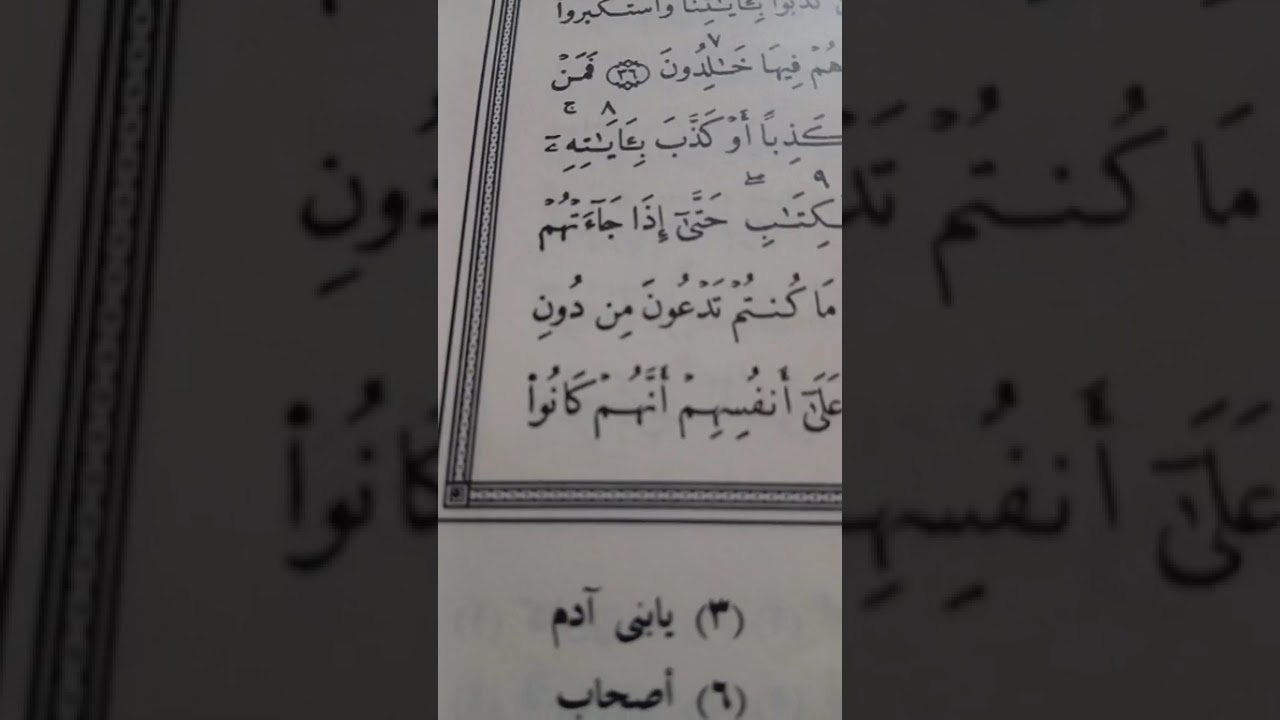 كَذَّبُوا۟ بِـَٔايَـٰتِنَا وَٱسْتَكْبَرُوا۟
هُمْ فِيهَا خَـٰلِدُونَ ٧ ﴿٣٦﴾ فَمَنْ
كَذِبًا أَوْ كَذَّبَ بِـَٔايَـٰتِهِۦٓ ٨ ج
ٱلْكِتَـٰبِ ٩ ۖ حَتَّىٰٓ إِذَا جَآءَتْهُمْ
مَا كُنتُمْ تَدْعُونَ مِن دُونِ
عَلَىٰٓ أَنفُسِهِمْ أَنَّهُمْ كَانُوا۟
(٣) يابنى آدم
(٦) أصحاب